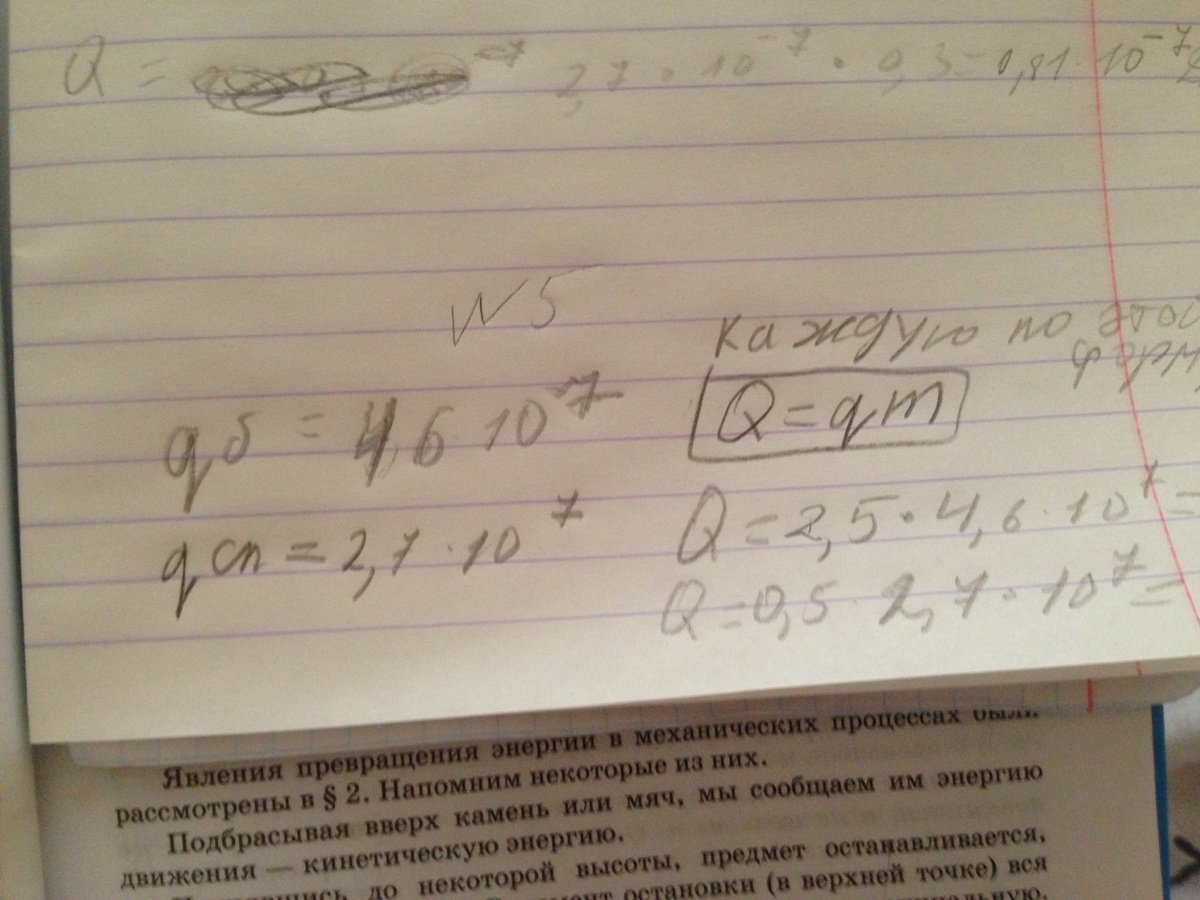 Q = 2,7 · 10⁻⁷ · 0,3 = 0,81 · 10⁻⁷
№5
каждую по этой
форм
Q = qm
qб = 4,6 10⁻⁷
qсп = 2,7 · 10⁷
Q = 2,5 · 4,6 · 10⁷ =
Q = 0,5 · 2,7 · 10⁷ =
Явления превращения энергии в механических процессах были
рассмотрены в § 2. Напомним некоторые из них.
Подбрасывая вверх камень или мяч, мы сообщаем им энергию
движения — кинетическую энергию.
до некоторой высоты, предмет останавливается,
остановки (в верхней точке) вся